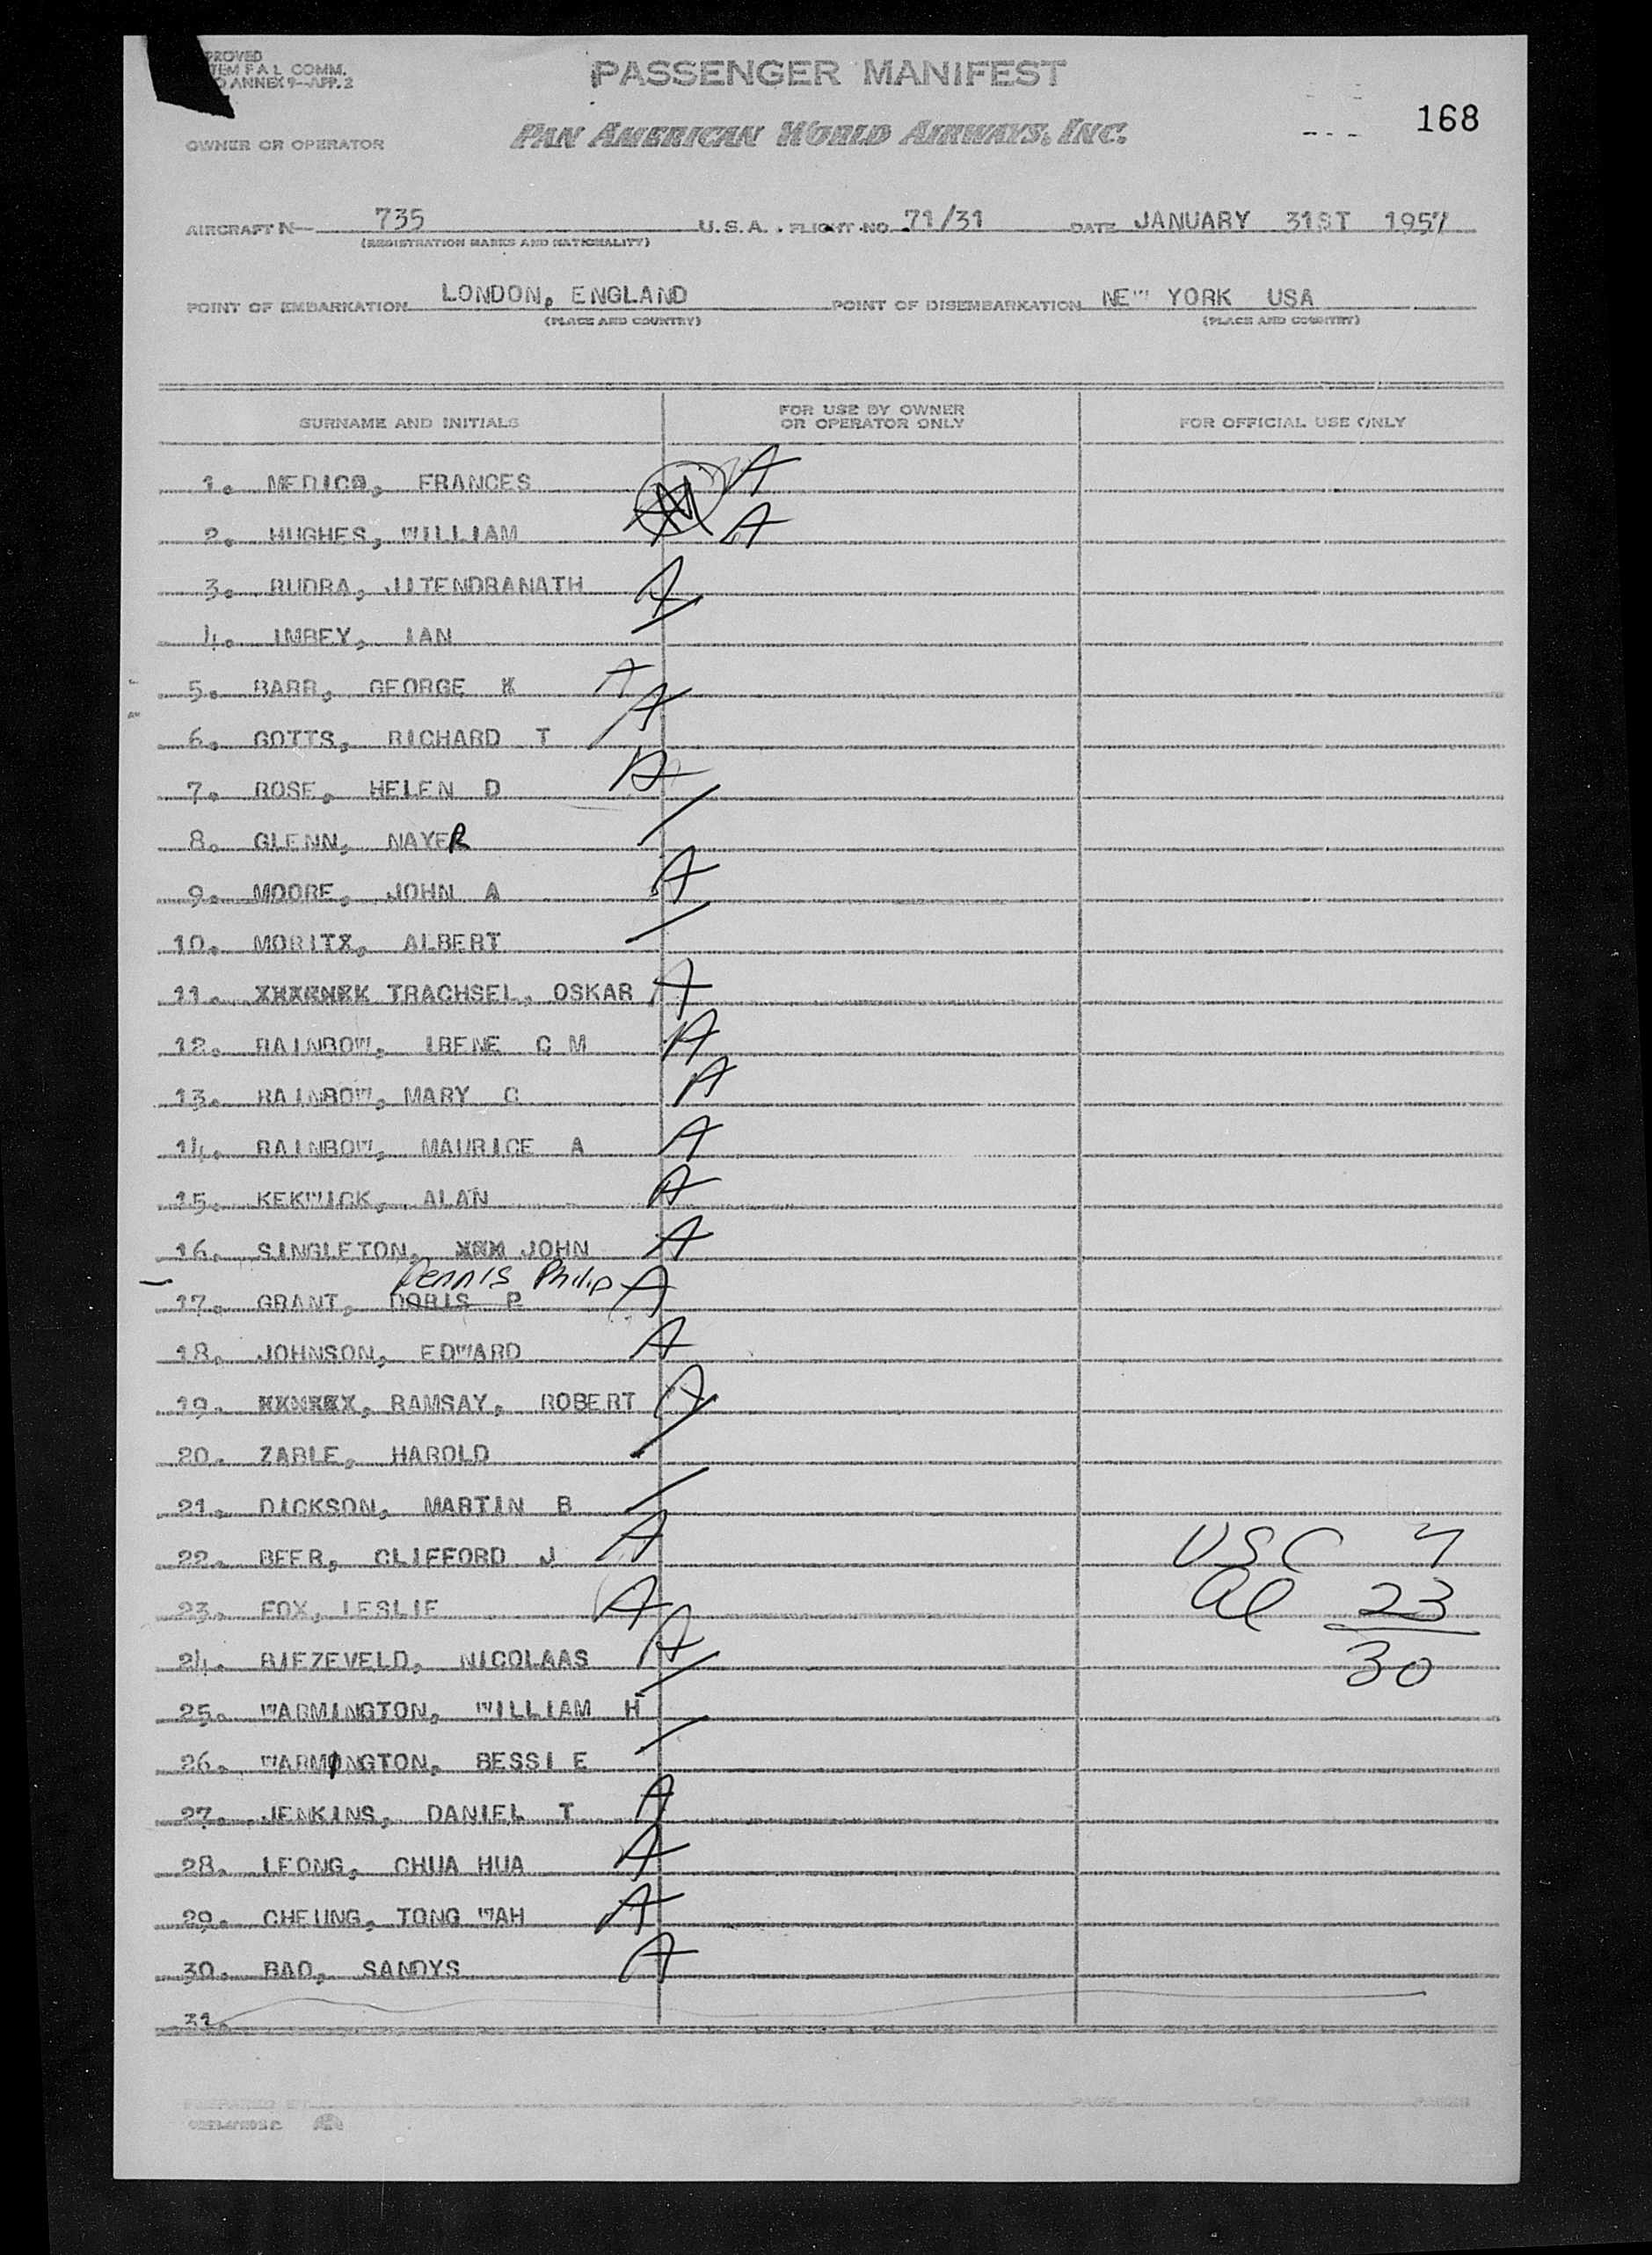 PROVED
TEM F A L COMM.
O ANNEX 9-APP. 2
PASSENGER MANIFEST
168
OWNER OR OPERATOR
PAN AMERICAN WORLD AIRWAYS, INC.
AIRCRAFT N— 735 U.S.A. FLIGHT NO. 71/31 DATE JANUARY 31ST 1957
(REGISTRATION MARKS AND NATIONALITY)
POINT OF EMBARKATION LONDON, ENGLAND POINT OF DISEMBARKATION NEW YORK USA
(PLACE AND COUNTRY) (PLACE AND COUNTRY)
SURNAME AND INITIALS FOR USE BY OWNER OR OPERATOR ONLY FOR OFFICIAL USE ONLY
1. MEDICO, FRANCES A
2. HUGHES, WILLIAM A
3. RUDRA, JITENDRANATH A
4. IMBEY, IAN
5. BARR, GEORGE K A
6. GOTTS, RICHARD T A
7. ROSE, HELEN D A
8. GLENN, NAYER
9. MOORE, JOHN A A
10. MORITX, ALBERT
11. TRACHSEL, OSKAR A
12. RAINBOW, IRENE C M A
13. RAINBOW, MARY C A
14. RAINBOW, MAURICE A A
15. KEKWICK, ALAN A
16. SINGLETON, JOHN A
Dennis Philip A
17. GRANT, DORIS P
18. JOHNSON, EDWARD A
19. RAMSAY, ROBERT A
20. ZABLE, HAROLD
21. DICKSON, MARTIN B
22. BEER, CLIFFORD J A USC 7
23. FOX, LESLIE A al 23
24. RIEZEVELD, NICOLAAS A 30
25. WARMINGTON, WILLIAM H
26. WARMINGTON, BESSIE
27. JENKINS, DANIEL T A
28. LEONG, CHUA HUA A
29. CHEUNG, TONG WAH A
30. BAO, SANDYS A
31.
PAGE OF PAGES